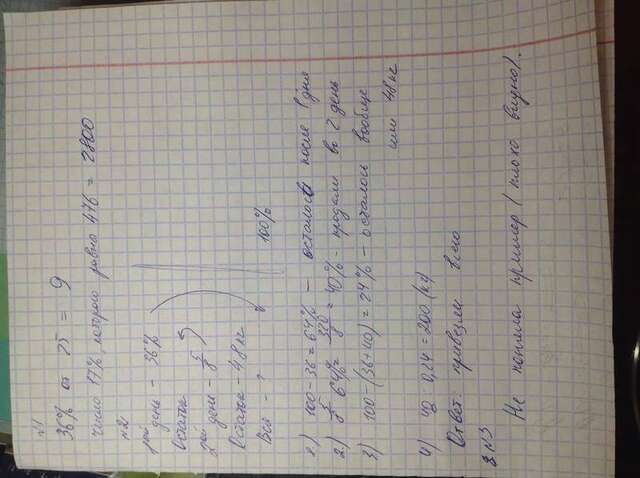 №1
36% от 25 = 9
число 17%, которого равны 476 = 2800
№2
1ый день - 36%
Остаток
2ой день - 5/8
Остаток - 48 кг
Всё - ?
100%
1) 100-36 = 64% - осталось после 1 дня
2) 5/8 · 64% = 320/8 = 40% - продали во 2 день
3) 100-(36+40) = 24% - осталось вообще
или 48 кг
4) 48 : 0,24 = 200 (кг)
Ответ: привезли всего
№3
Не поняла пример (плохо видно).